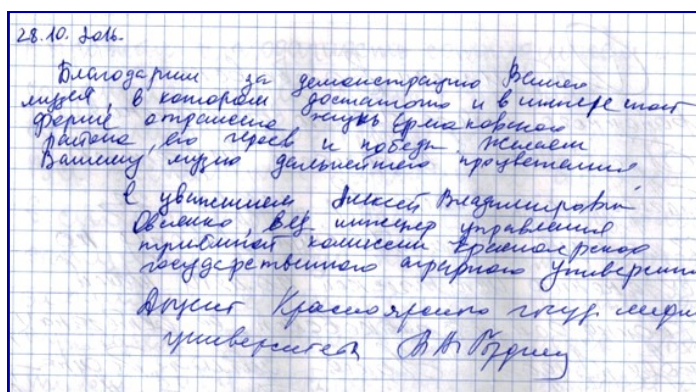 28.10.2016.
Благодарим за демонстрацию Вашего
музея, в котором достаточно и в интересной
форме отражена жизнь Ермаковского
района, его героев и победы. Желаем
Вашему музею дальнейшего процветания
С уважением Алексей Владимирович
вед. инженер управления
приёмной комиссии Красноярского
государственного аграрного университета
Доцент Красноярского госуд. мед
университета